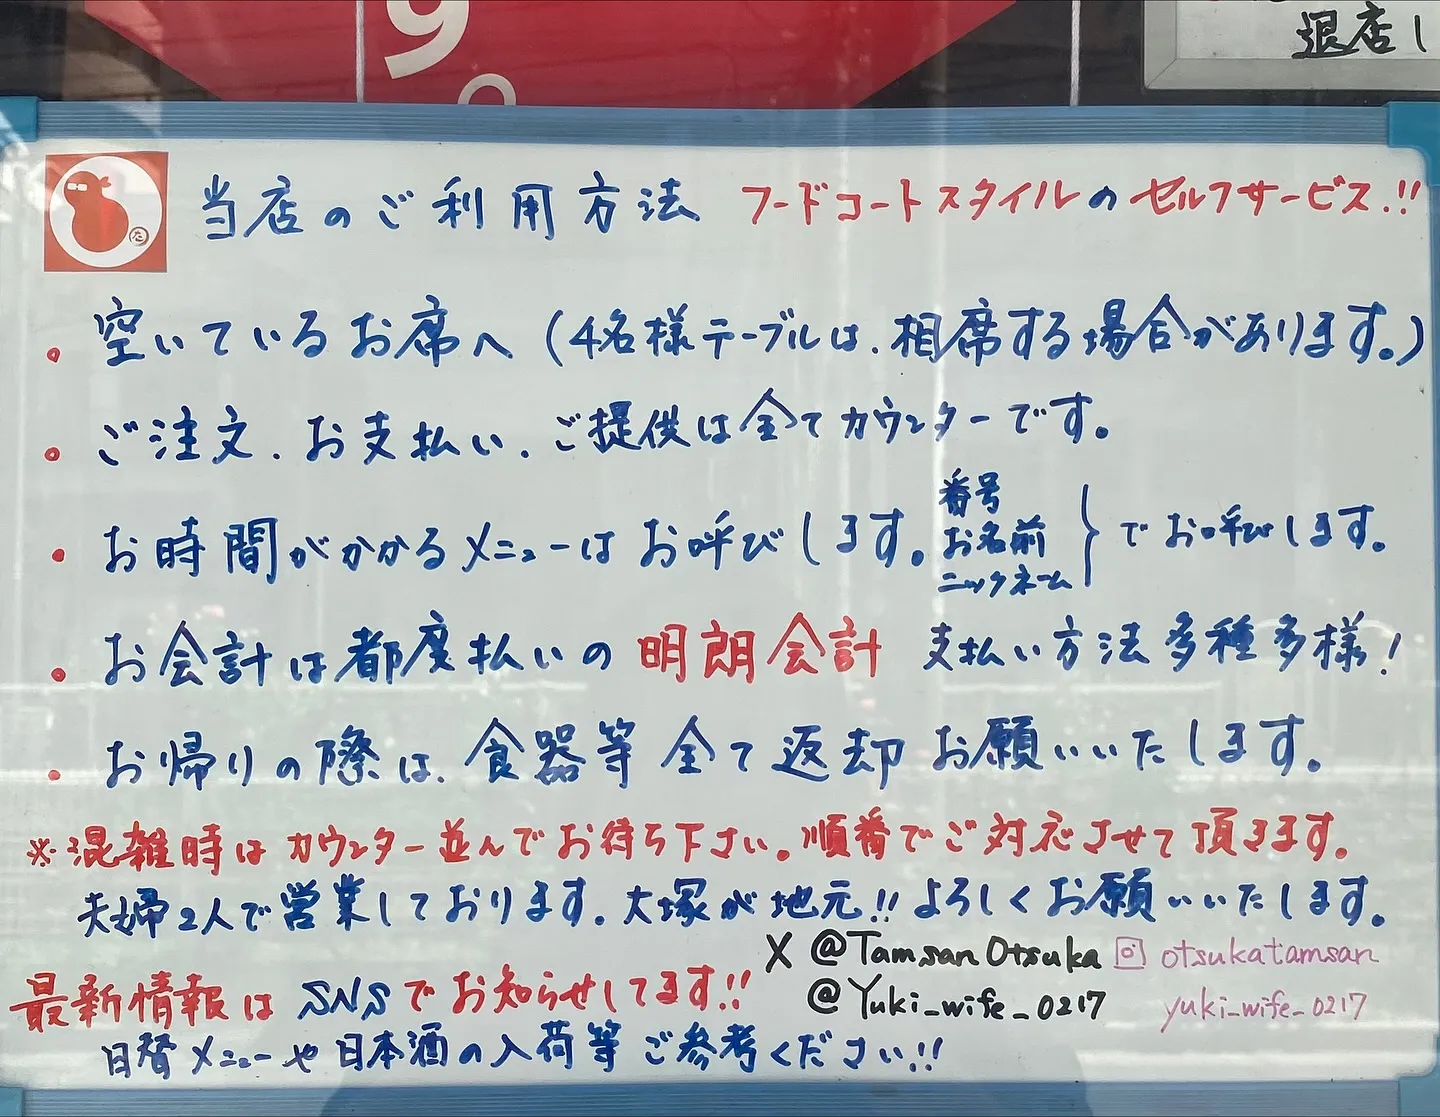 9
退店し
た
当店のご利用方法 フードコートスタイルのセルフサービス!!
・空いているお席へ(4名様テーブルは、相席する場合があります。)
・ご注文、お支払い、ご提供は全てカウンターです。
・お時間がかかるメニューはお呼びします。番号 お名前 ニックネーム}でお呼びします。
・お会計は都度払いの明朗会計 支払い方法多種多様!
・お帰りの際は、食器等全て返却お願いいたします。
※混雑時はカウンター並んでお待ち下さい。順番でご対応させて頂きます。
夫婦2人で営業しております。大塚が地元!!よろしくお願いいたします。
X @TamsanOtsuka otsukatamsan
@Yuki_wife_0217 yuki_wife_0217
最新情報はSNSでお知らせしてます!!
日替メニューや日本酒の入荷等ご参考ください!!